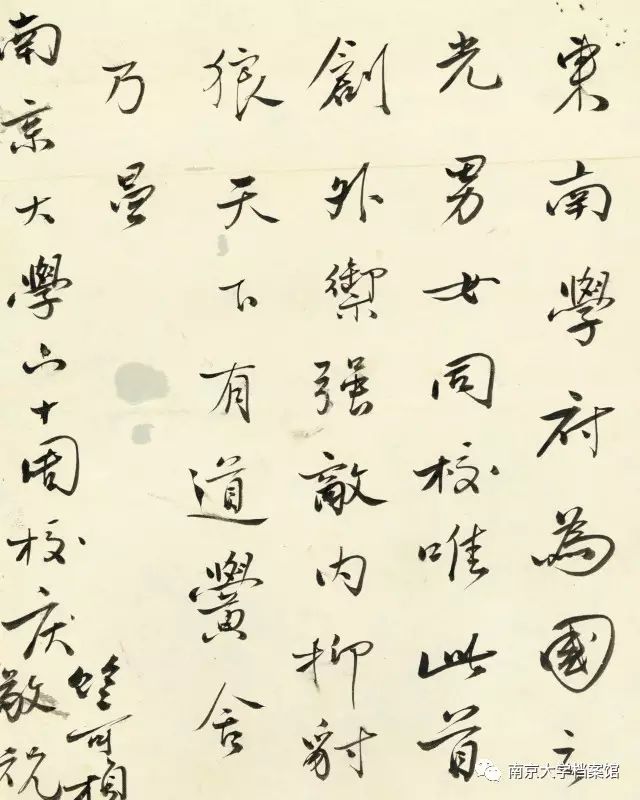 東南學府為國之
光男女同校唯此首
創外禦强敵内抑豺
狼天下有道黌舍
乃昌
南京大學六十周校庆敬祝
竺可楨
南京大学档案馆